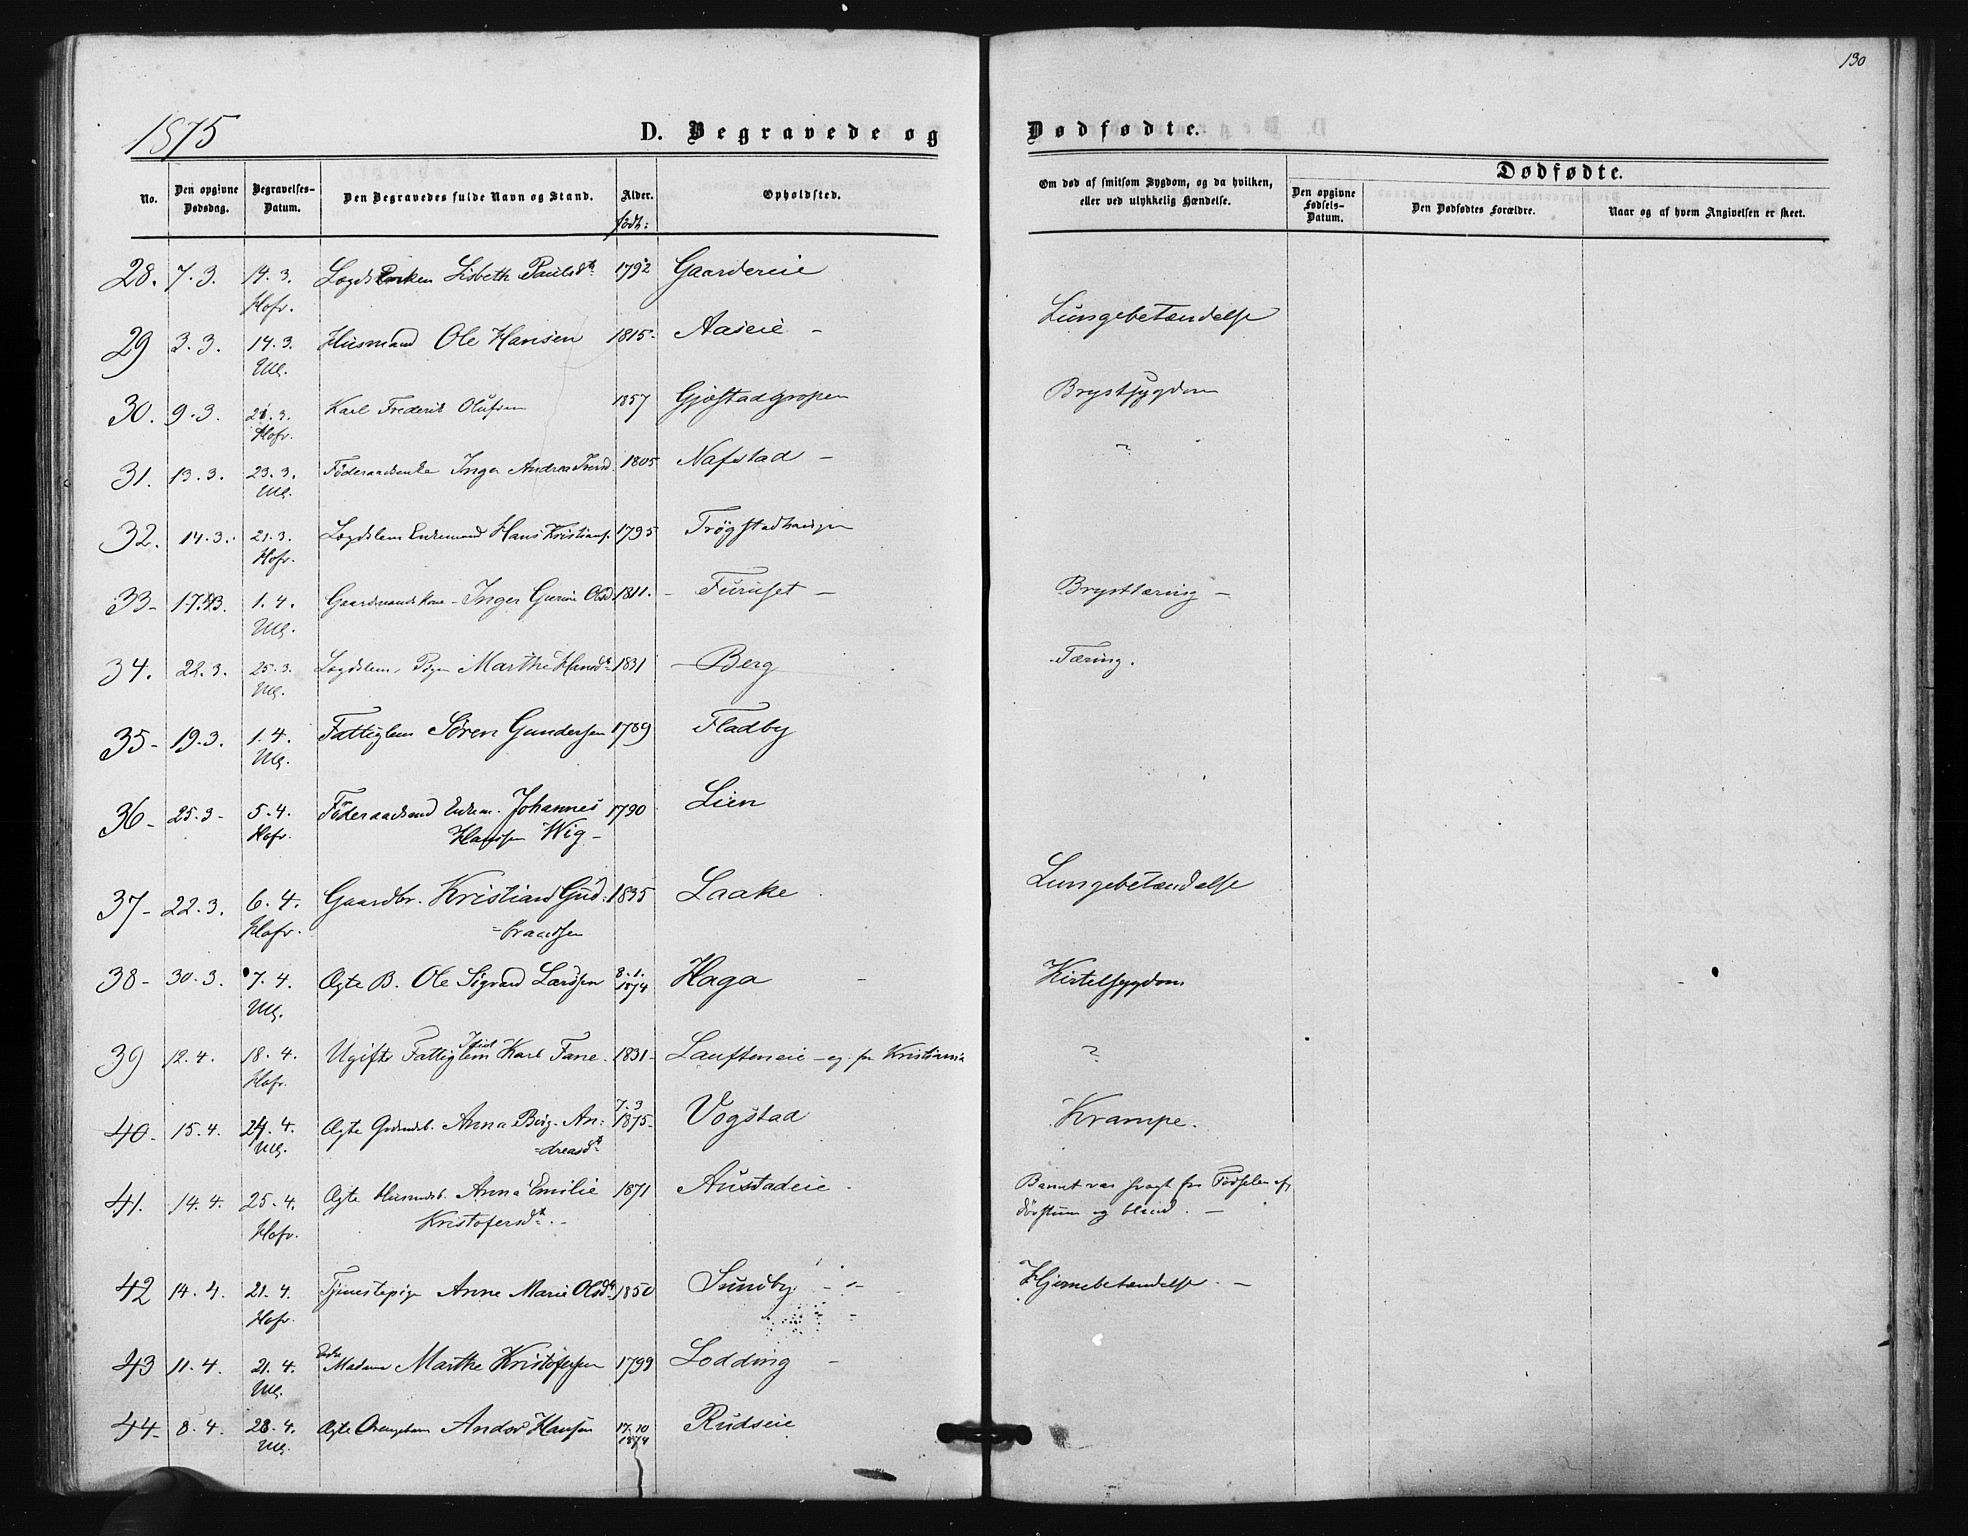 130
1875
D. Begravede og
Dødfødte.
No.
Den opgivne Dødsdag.
Begravelses-Datum.
Den Begravedes fulde Navn og Stand.
Alder.
født:
Opholdsted.
Om død af smitsom Sygdom, og da hvilken, eller ved ulykkelig Hændelse.
Dødfødte.
Den opgivne Fødsels-Datum.
Den Dødfødtes Forældre.
Naar og af hvem Angivelsen er skeet.
28. 7.3. 19.3. Lisbeth Paulsdt. 1792 Gaardereie
Hofr.
Lungebetændelse
29 3.3. 14.3. Husmand Ole Hansen 1815 Aaseie –
Ull.
Brystsygdom
30. 9.3. 21.3. Karl Frederik Olufsen 1857 Gjøstadgropen
Hofr.
?
31. 13.3. 23.3. Føderaadsenke Inger Andrea 1805 Nafstad –
Ull.
32. 14.3. 21.3. Lægdslem Enkemand Hans Kristians. 1795
Hofr.
33 – 17.3. 1.4. Gaardmandskone – Inger Gurine Olsd. 1811. – Furuset –
Ull.
Brysttæring –
34. 22.3. 25.3. Lægdslem, Pige Marthe Hansdt. 1831 – Berg
Ull.
Tæring.
35 – 19.3. 1.4. Fattiglem Søren Gundersen 1789 Fladby
Ull.
36 – 25.3 – 5.4. Føderaadsmd Enkem. Johannes 1790 Lien
Hofr. Hanssen Wig –
37 – 22.3. 6.4. Gaardbr. Kristian Gud- 1835 Laake
Hofr. =brandsen
Lungebetændelse
38 – 30.3. 7.4. Ægte B. Ole Sigvard Larssen 8.1. 1874 Haga –
Ull.
Kirtelsygdom
39 12.4. 18.4. Ugifte Fattiglem Karl Fane. 1831 – eg. fra Kristiania
Hofr.
?
40 – 15.4. 24.4. Ægte Anna Berg. An: 7.3 1875 – Vogstad
Ull. =dreasdt.
Krampe.
41. 14.4. 25.4. Ægte Husmdsb. Anna Emilie 1871 Austadeie.
Hofr. Kristofersdt. –
Barnet var svagt fra Fødselen af,
døvstum og blind. –
42 14.4. 21.4. Tjenestepige Anne Marie Olsdt. 1850 Sundby –
Hofr.
Hjernebetændelse. –
43 11.4. 21.4. Madame Marthe Kristofersen 1799 Lodding –
Ull.
44 – 8.4. 28.4. Ægte Andor Hansen 17.10 1874 Rudseie
Ull.